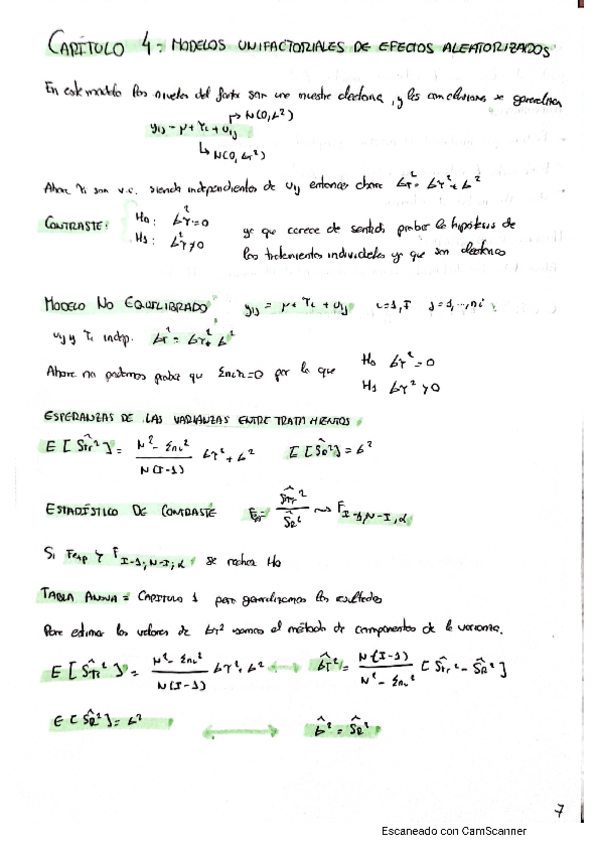 CAPÍTULO 4: MODELOS UNIFACTORIALES DE EFECTOS ALEATORIZADOS
En este modelo los niveles del factor son una muestra aleatoria, y las conclusiones se generalizan
→ N(0, σ²)
yij = μ + τi + uij
↳ N(0, στ²)
Ahora τi son v.a. siendo independientes de uij entonces ahora σT² = στ² + σ²
CONTRASTE: H0: στ² = 0 ya que carece de sentido probar la hipótesis de
H1: στ² ≠ 0 los tratamientos individuales ya que son aleatorios
MODELO NO EQUILIBRADO yij = μ + τi + uij i=1,I j=1,...,ni
uij y τi indep. σT² = στ² + σ²
Ahora no podemos probar que Σniτi=0 por lo que H0 στ² = 0
H1 στ² > 0
ESPERANZAS DE LAS VARIANZAS ENTRE TRATAMIENTOS
E[ŜTr²] = (N² - Σni²) / (N(I-1)) στ² + σ² E[ŜR²] = σ²
ESTADÍSTICO DE CONTRASTE = ŜTr² / ŜR² ⇝ F I-1, N-I, α
Si Fexp > F I-1, N-I, α se rechaza H0
TABLA ANOVA = CAPITULO 1 pero generalizamos los resultados
Para estimar los valores de στ² usamos el método de componentes de la varianza.
E[ŜTr²] = (N² - Σni²) / (N(I-1)) στ² + σ² ↔ σ̂τ² = N(I-1) / (N² - Σni²) [ŜTr² - ŜR²]
E[ŜR²] = σ² ↔ σ̂² = ŜR²
7
Escaneado con CamScanner